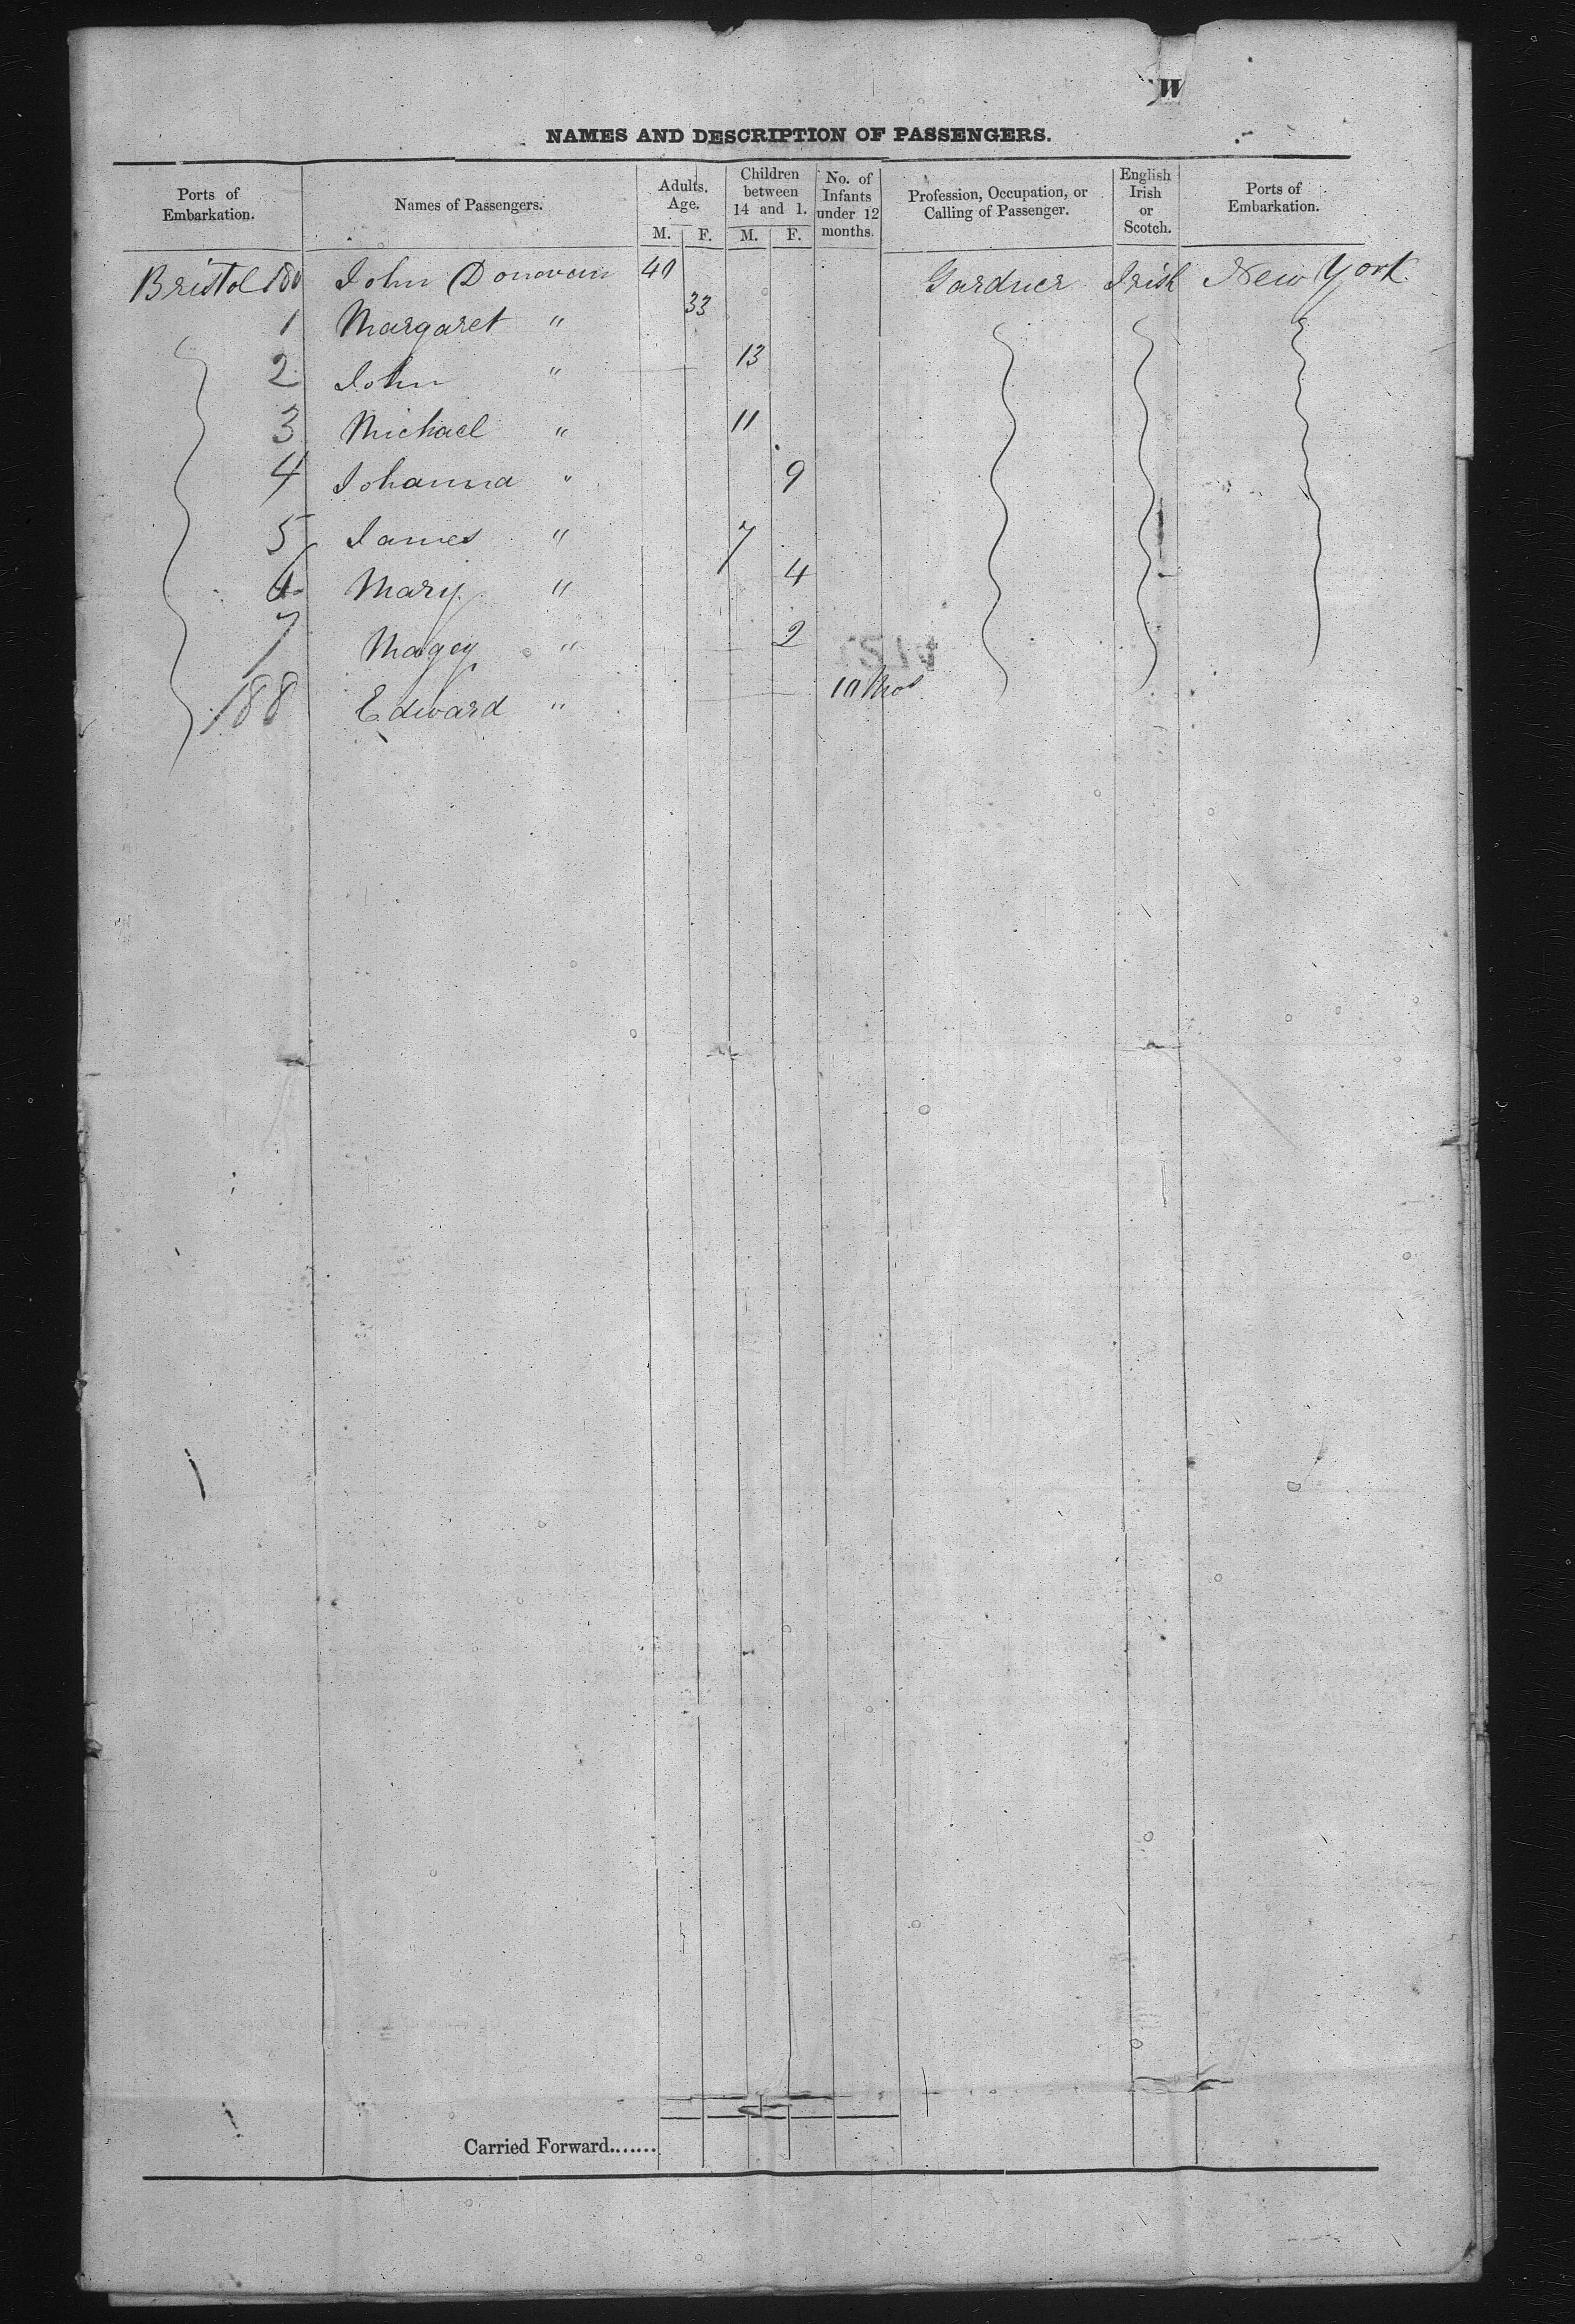 W
NAMES AND DESCRIPTION OF PASSENGERS.
Ports of Embarkation. Names of Passengers. Adults. Age. M. F. Children between 14 and 1. M. F. No. of Infants under 12 months. Profession, Occupation, or Calling of Passenger. English Irish or Scotch. Ports of Embarkation.
Bristol 180 John Donovan 40 Gardner Irish New York
1 Margaret " 33
2 John " 13
3 Michael " 11
4 Johanna " 9
5 James " 7
6 Mary " 4
7 Magey " 2
188 Edward " 10 Mos
Carried Forward.......